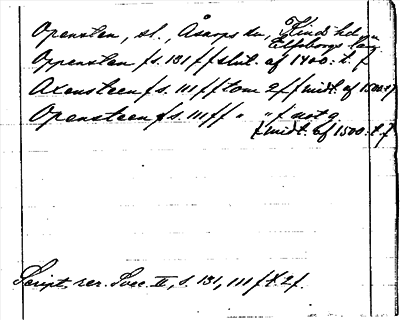 Opensten, sl., Åsarps sn, Kinds hd,
Elfsborgs län
Oppensten / s. 131 / / slut. af 1400: t. /
Axensteen / s. 111 / / tom 2 / / midt. af 1500: t /
Opensteen / s. 111 / / " " / not 9
/ midt. af 1500: t. /
Script. rer. Svec. II, s. 131, 111 / t. 2 /.